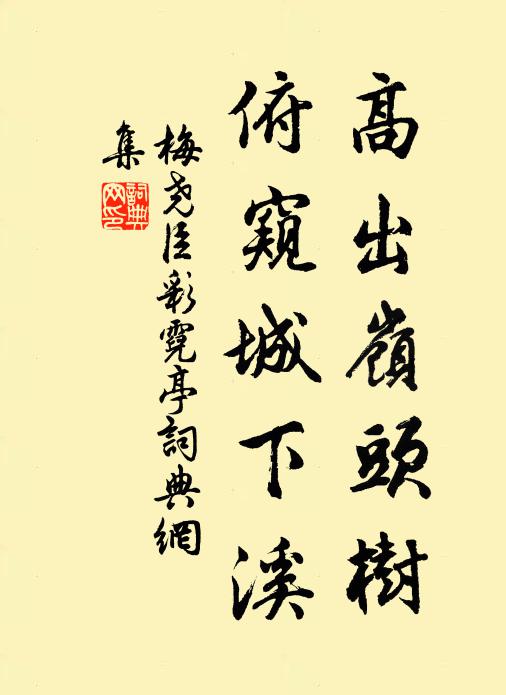 高出嶺頭樹
俯窺城下溪
梅堯臣彩霓亭詞典網
集
詞典
网印